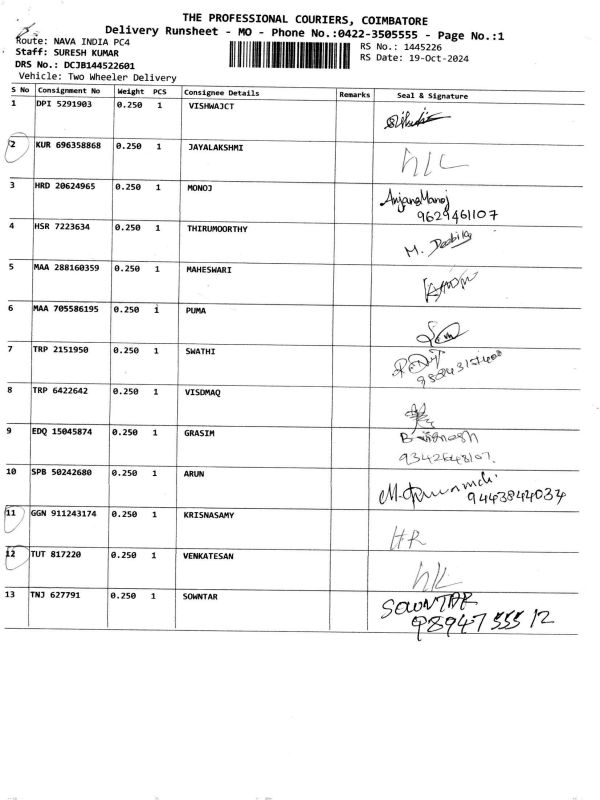 THE PROFESSIONAL COURIERS, COIMBATORE
Delivery Runsheet - MO - Phone No.:0422-3505555 - Page No.:1
Route: NAVA INDIA PC4
RS No.: 1445226
Staff: SURESH KUMAR
RS Date: 19-Oct-2024
DRS No.: DCJB144522601
Vehicle: Two Wheeler Delivery
S No Consignment No Weight PCS Consignee Details Remarks Seal & Signature
1 DPI 5291903 0.250 1 VISHWAJCT
2 KUR 696358868 0.250 1 JAYALAKSHMI
3 HRD 20624965 0.250 1 MONOJ
9629461107
4 HSR 7223634 0.250 1 THIRUMOORTHY
M.
5 MAA 288160359 0.250 1 MAHESWARI
6 MAA 705586195 0.250 1 PUMA
7 TRP 2151950 0.250 1 SWATHI
8 TRP 6422642 0.250 1 VISDMAQ
9 EDQ 15045874 0.250 1 GRASIM
9342648107.
10 SPB 50242680 0.250 1 ARUN
9443844034
11 GGN 911243174 0.250 1 KRISNASAMY
12 TUT 817220 0.250 1 VENKATESAN
13 TNJ 627791 0.250 1 SOWNTAR SOWNTAR
98947 555 12